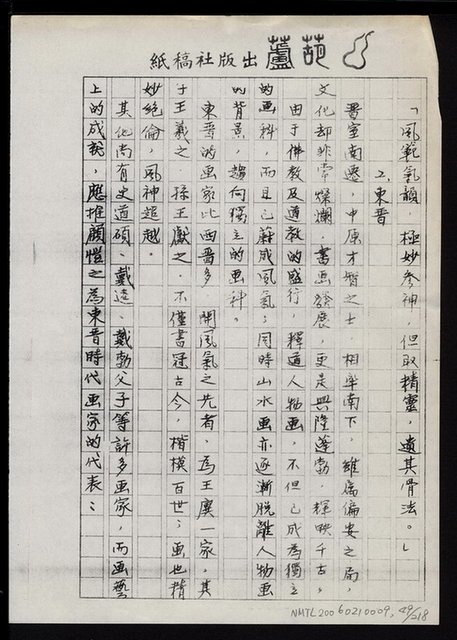 葫蘆出版社稿紙
「風範氣韻，極妙參神，但取精靈，遺其骨法。」
2.東晉
晋室南遷，中原才智之士，相率南下，雖屬偏安之局，
文化却非常燦爛，書画發展，更是興隆蓬勃，輝映千古，
由于佛教及道教的盛行，釋道人物画，不但已成為獨立
的画科，而且已蔚成風氣；同時山水画亦逐漸脱離人物画
的背景，趨向獨立的画科。
東晋的画家比西晋多，開風氣之先者，為王廙一家，其
于王羲之、孫王獻之，不僅書冠古今，楷模百世；画也精
妙絕倫，風神超越。
其他尚有史道碩、戴逵、戴勃父子等許多画家，而画藝
上的成就，應推顧愷之為東晋時代画家的代表：
NMTL20060210009, 49/218